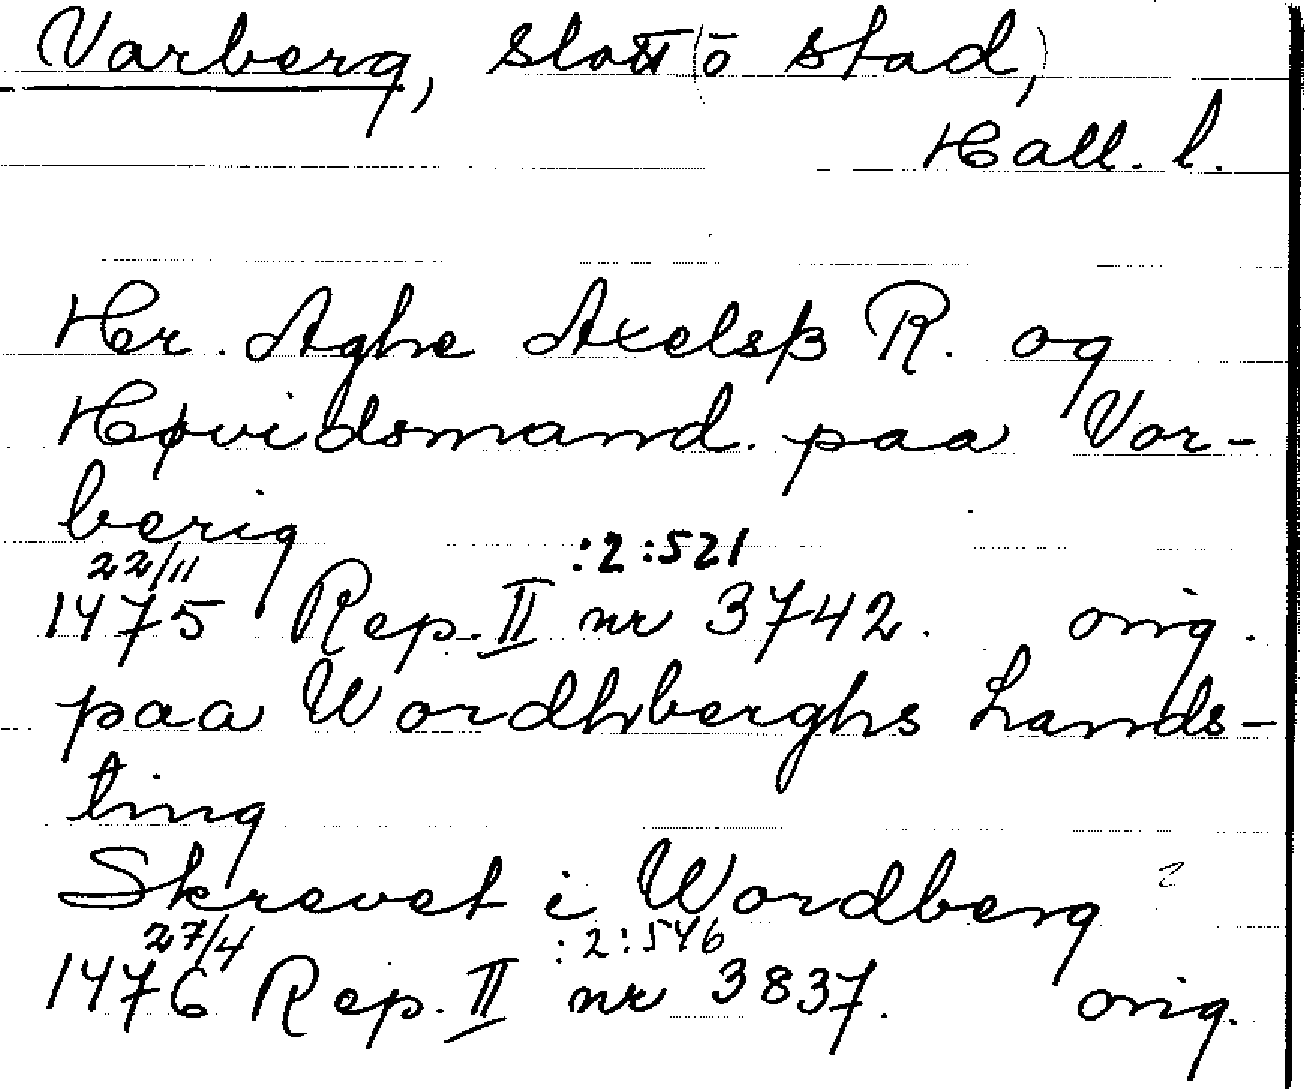 Varberg, slott (o stad,)
Hall. l.
Hr. Aghe Axelsß R. og
Høvidsmand paa Vor-
berig
22/11 :2:521
1475 Rep. II nr 3742. orig.
paa Wordhberghs Lands-
ting
Skrevet i Wordberg ?
27/4 :2:546
1476 Rep. II nr 3837. orig.